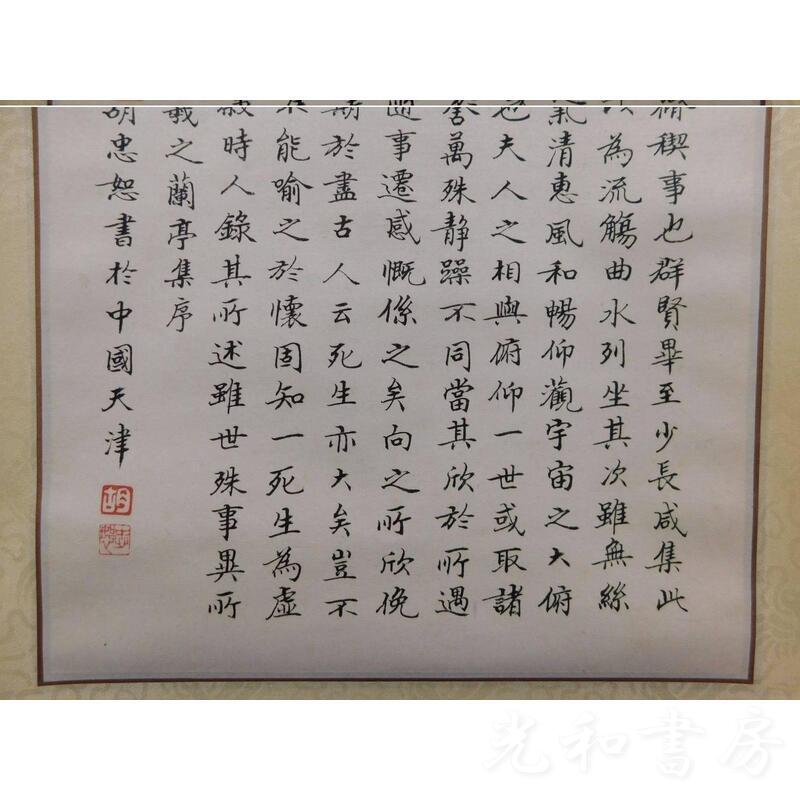 脩稧事也群賢畢至少長咸集此
以為流觴曲水列坐其次雖無絲
氣清惠風和暢仰觀宇宙之大俯
也夫人之相與俯仰一世或取諸
舍萬殊静躁不同當其欣於所遇
隨事遷感慨係之矣向之所欣俛
期於盡古人云死生亦大矣豈不
不能喻之於懷固知一死生為虛
敘時人錄其所述雖世殊事異所
羲之蘭亭集序
胡忠恕書於中國天津
胡
光和書房